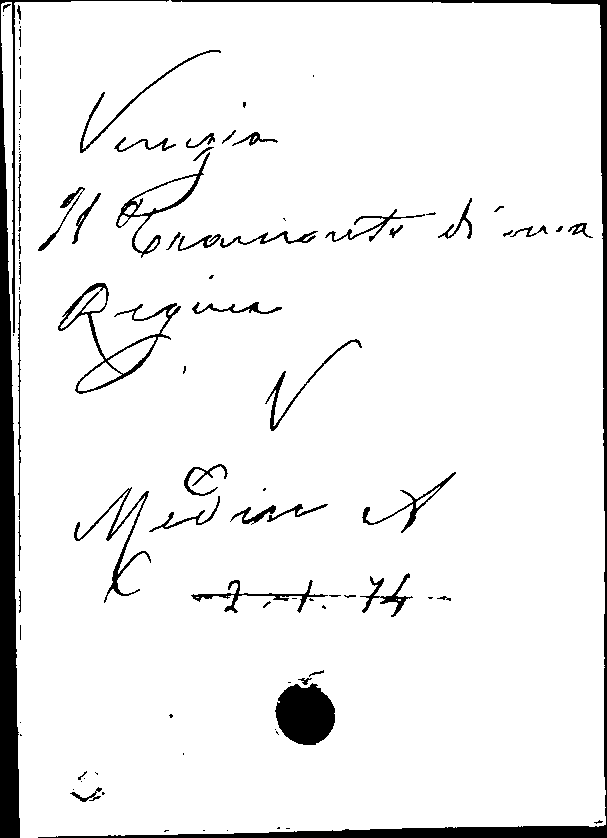 Venezia
Il Tramonto di una
Regina
V
Medin A
2.1.74